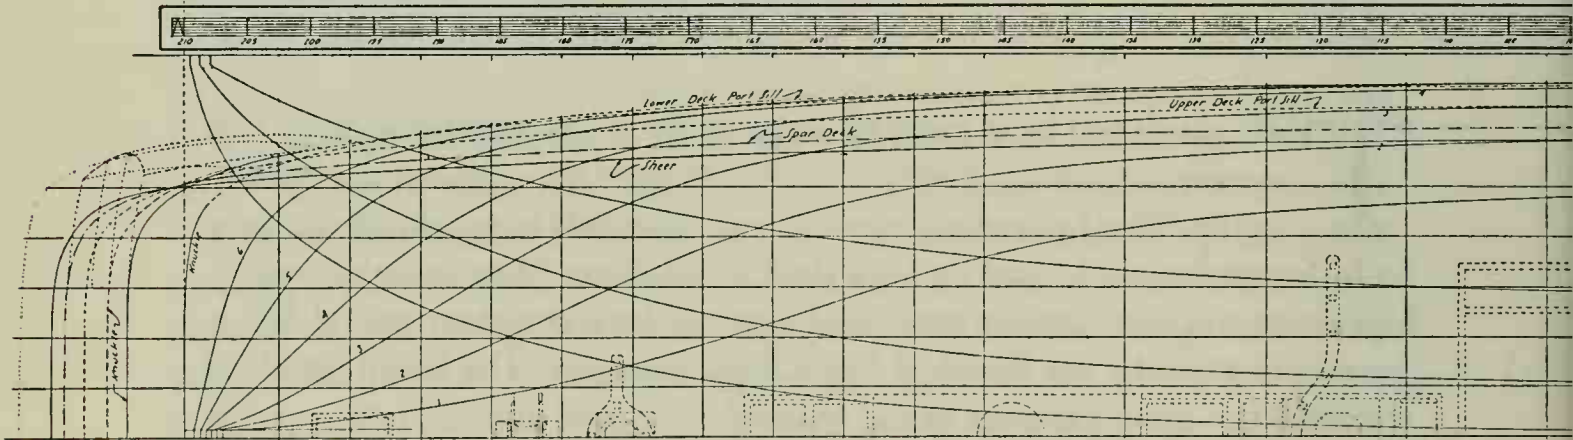 210 205 200 195 190 185 180 175 170 165 160 155 150 145 140 135 130 125 120 115 110
Lower Deck Port Sill
Upper Deck Port Sill
Spar Deck
Sheer
Knuckle
Knuckle
6
5
4
3
2
1